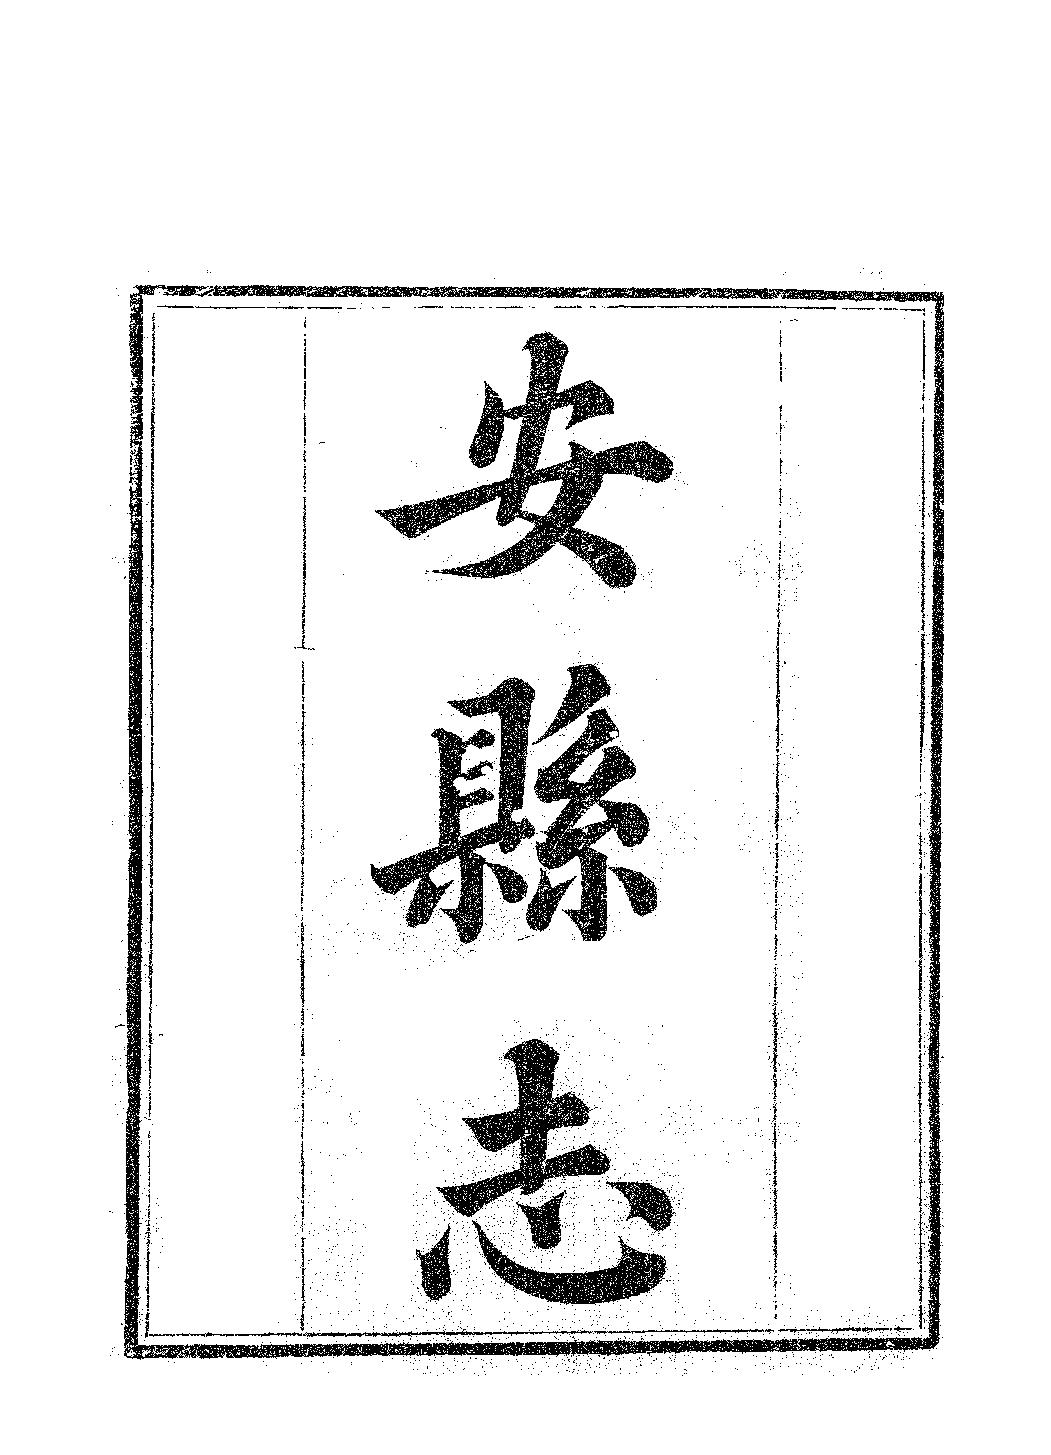 安縣志